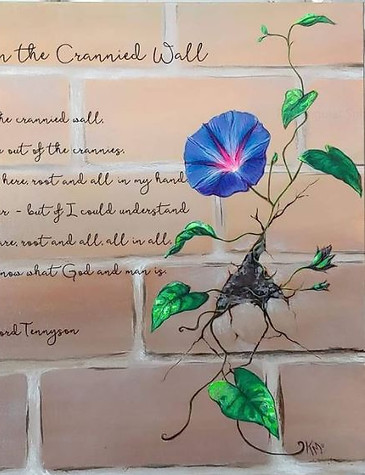 n the Crannied Wall
he crannied wall,
e out of the crannies,
here, root and all in my hand
er - but if I could understand
are, root and all, all in all,
now what God and man is.
ord Tennyson